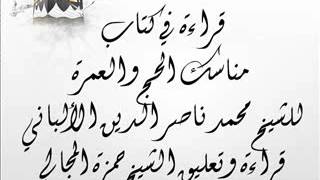 قراءة في كتاب
مناسك الحج والعمرة
للشيخ محمد ناصر الدين الألباني
قراءة وتعليق الشيخ حمزة المجالي